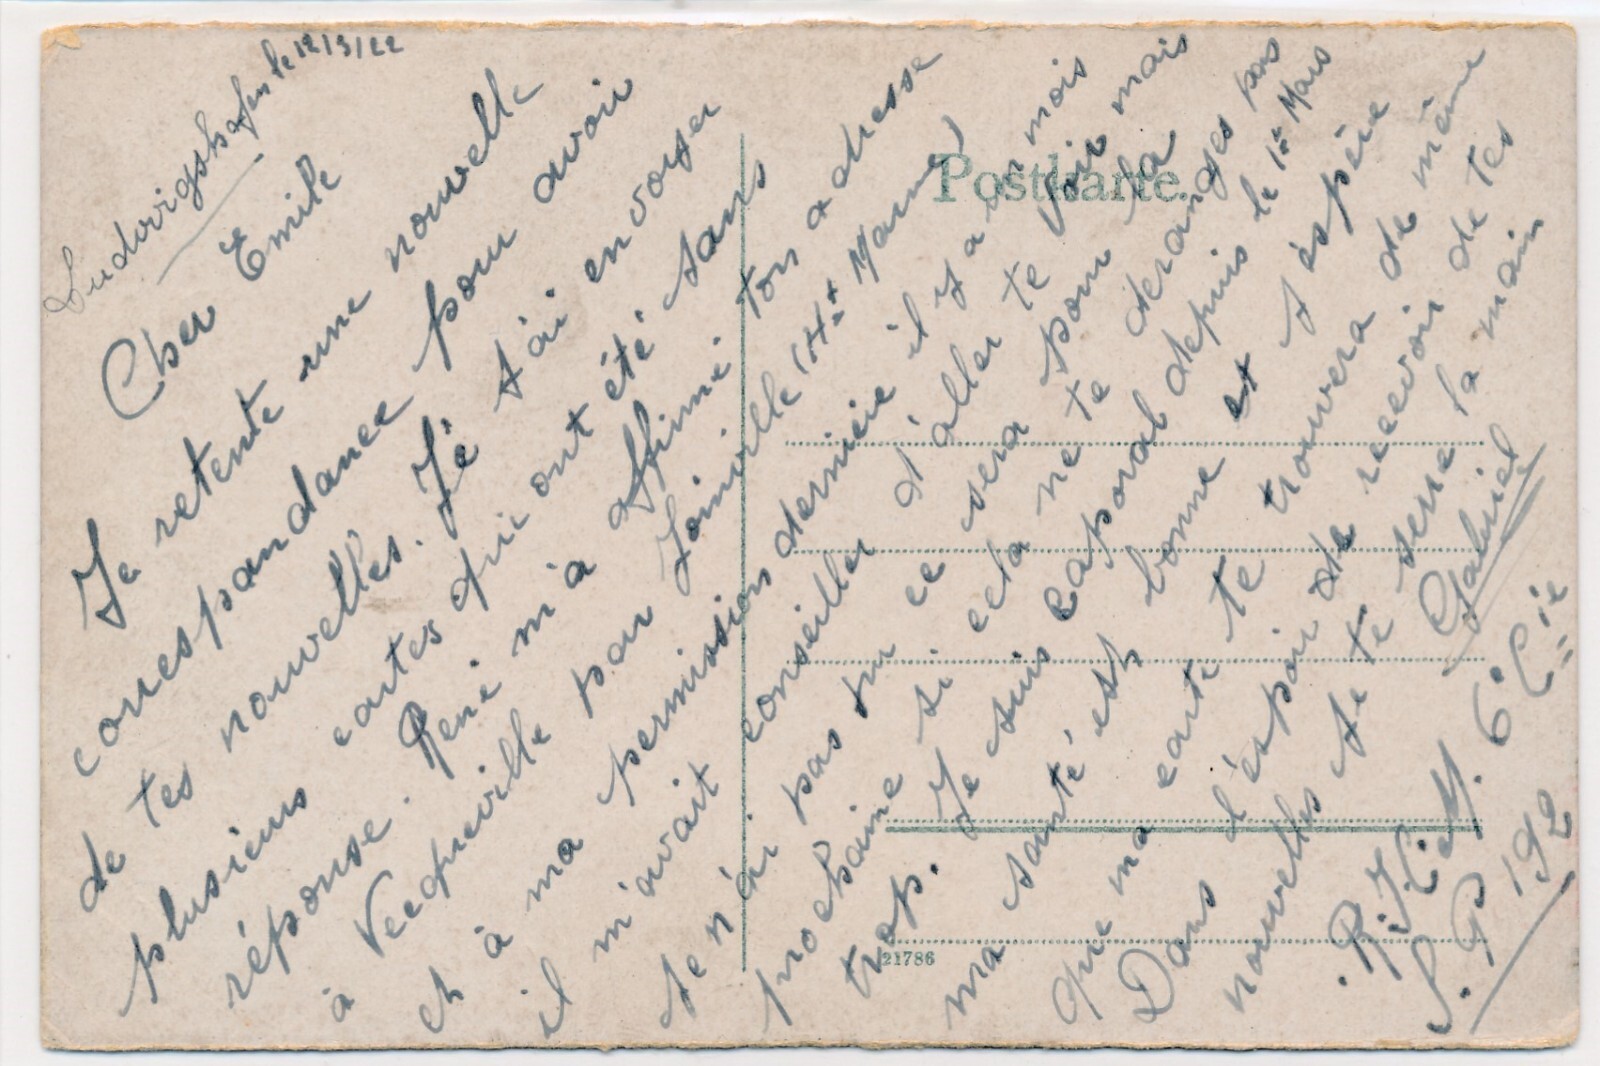 Ludwigshafen le 12/3/22
Cher Emile
Je retente une nouvelle
correspondance pour avoir
de tes nouvelles. Je t'ai envoyer
plusieurs cartes qui ont été sans
réponse. René m'a affirmé ton adresse
à Vecqueville par Joinville (Hte Marne)
et à ma permission dernière il y a un mois
il m'avait conseiller d'aller te voir mais
je n'ai pas pu ce sera pour la
prochaine si cela ne te déranges pas
trop. Je suis caporal depuis le 1er Mars
ma santé est bonne et j'éspère
que ma carte te trouvera de même
Dans l'éspoir de recevoir de tes
nouvelles je te serre la main
Gabriel
6e Cie
S. P 192
Postkarte
21786